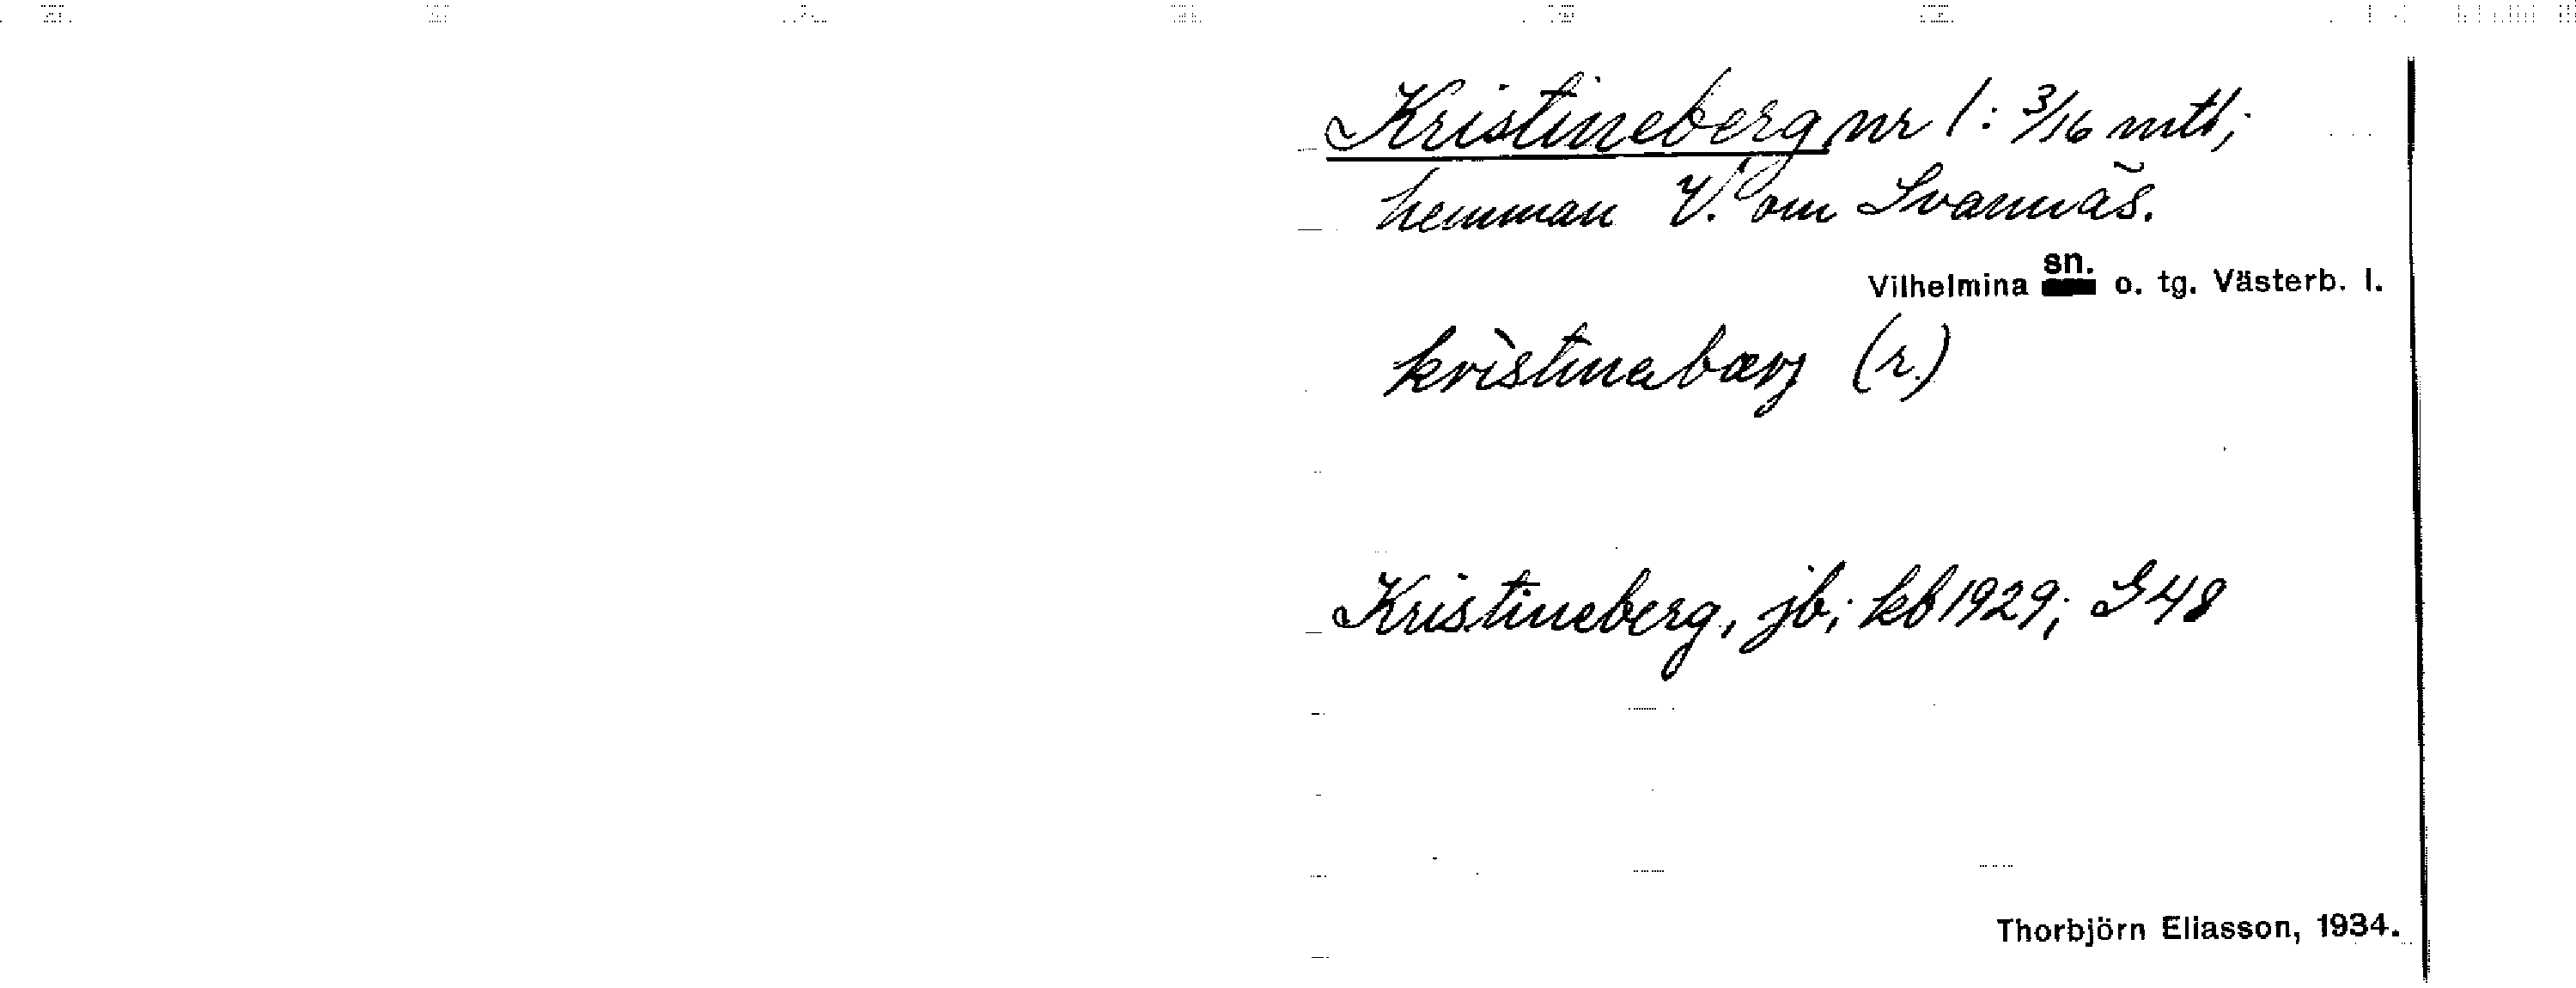 Kristineberg nr 1: 3/16 mtl;
hemman V. om Svannäs.
Vilhelmina sn. o. tg. Västerb. l.
krìstinabærj (r.)
Kristineberg, jb; kb 1929; G48
Thorbjörn Eliasson, 1934.